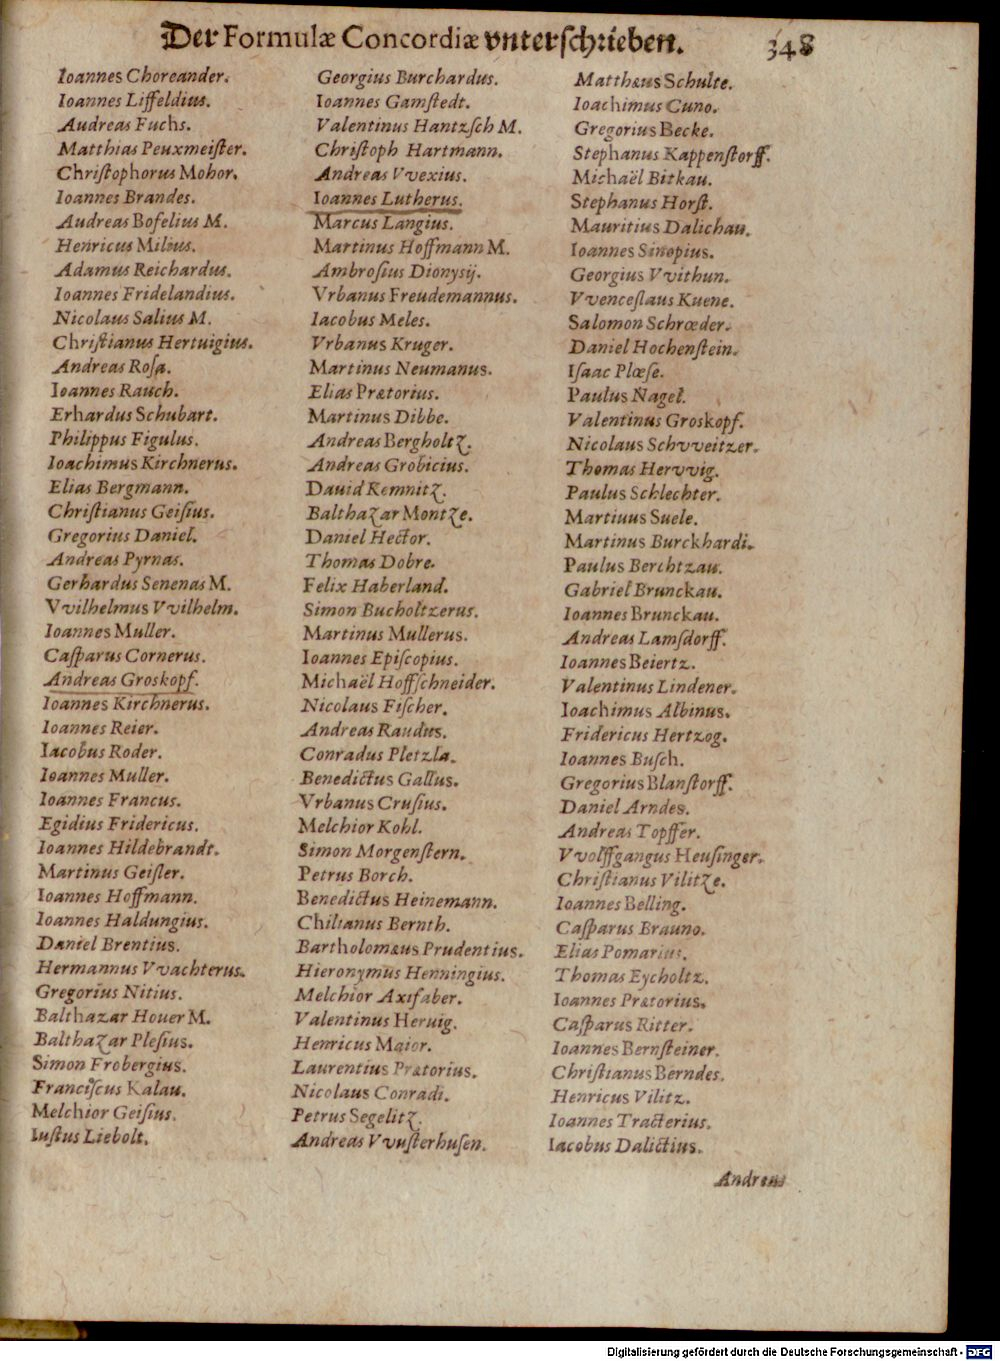 Der Formulæ Concordiæ vnterschrieben. 348
Ioannes Choreander.
Ioannes Liffeldius.
Audreas Fuchs.
Matthias Peuxmeister.
Christophorus Mohor.
Ioannes Brandes.
Audreas Bofelius M.
Henricus Milius.
Adamus Reichardus.
Ioannes Fridelandius.
Nicolaus Salius M.
Christianus Hertuigius.
Andreas Rosa.
Ioannes Rauch.
Erhardus Schubart.
Philippus Figulus.
Ioachimus Kirchnerus.
Elias Bergmann.
Christianus Geisius.
Gregorius Daniel.
Andreas Pyrnas.
Gerhardus Senenas M.
Vvilhelmus Vvilhelm.
Ioannes Muller.
Casparus Cornerus.
Andreas Groskopf.
Ioannes Kirchnerus.
Ioannes Reier.
Iacobus Roder.
Ioannes Muller.
Ioannes Francus.
Egidius Fridericus.
Ioannes Hildebrandt.
Martinus Geisler.
Ioannes Hoffmann.
Ioannes Haldungius.
Daniel Brentius.
Hermannus Vvachterus.
Gregorius Nitius.
Balthazar Houer M.
Balthazar Plesius.
Simon Frobergius.
Franciscus Kalau.
Melchior Geisius.
Iustus Liebolt.
Georgius Burchardus.
Ioannes Gamstedt.
Valentinus Hantzsch M.
Christoph Hartmann.
Andreas Vvexius.
Ioannes Lutherus.
Marcus Langius.
Martinus Hoffmann M.
Ambrosius Dionysij.
Vrbanus Freudemannus.
Iacobus Meles.
Vrbanus Kruger.
Martinus Neumanus.
Elias Prætorius.
Martinus Dibbe.
Andreas Bergholtz.
Andreas Grobicius.
Dauid Kemnitz.
Balthazar Montze.
Daniel Hector.
Thomas Dobre.
Felix Haberland.
Simon Bucholtzerus.
Martinus Mullerus.
Ioannes Episcopius.
Michaël Hoffschneider.
Nicolaus Fischer.
Andreas Raudus.
Conradus Pletzla.
Benedictus Gallus.
Vrbanus Crusius.
Melchior Kohl.
Simon Morgenstern.
Petrus Borch.
Benedictus Heinemann.
Chilianus Bernth.
Bartholomæus Prudentius.
Hieronymus Henningius.
Melchior Axifaber.
Valentinus Heruig.
Henricus Maior.
Laurentius Prætorius.
Nicolaus Conradi.
Petrus Segelitz.
Andreas Vvusterhusen.
Matthæus Schulte.
Ioachimus Cuno.
Gregorius Becke.
Stephanus Kappenstorff.
Michaël Bitkau.
Stephanus Horst.
Mauritius Dalichau.
Ioannes Sinopius.
Georgius Vvithun.
Vvenceslaus Kuene.
Salomon Schrœder.
Daniel Hochenstein.
Isaac Plœse.
Paulus Nagel.
Valentinus Groskopf.
Nicolaus Schvveitzer.
Thomas Hervvig.
Paulus Schlechter.
Martiuus Suele.
Martinus Burckhardi.
Paulus Berchtzau.
Gabriel Brunckau.
Ioannes Brunckau.
Andreas Lamsdorff.
Ioannes Beiertz.
Valentinus Lindener.
Ioachimus Albinus.
Fridericus Hertzog.
Ioannes Busch.
Gregorius Blanstorff.
Daniel Arndes.
Andreas Topffer.
Vvolffgangus Heusinger.
Christianus Vilitze.
Ioannes Belling.
Casparus Brauno.
Elias Pomarius.
Thomas Eycholtz.
Ioannes Prætorius.
Casparus Ritter.
Ioannes Bernsteiner.
Christianus Berndes.
Henricus Vilitz.
Ioannes Tracterius.
Iacobus Dalictius.
Andreas
Digitalisierung gefördert durch die Deutsche Forschungsgemeinschaft - DFG